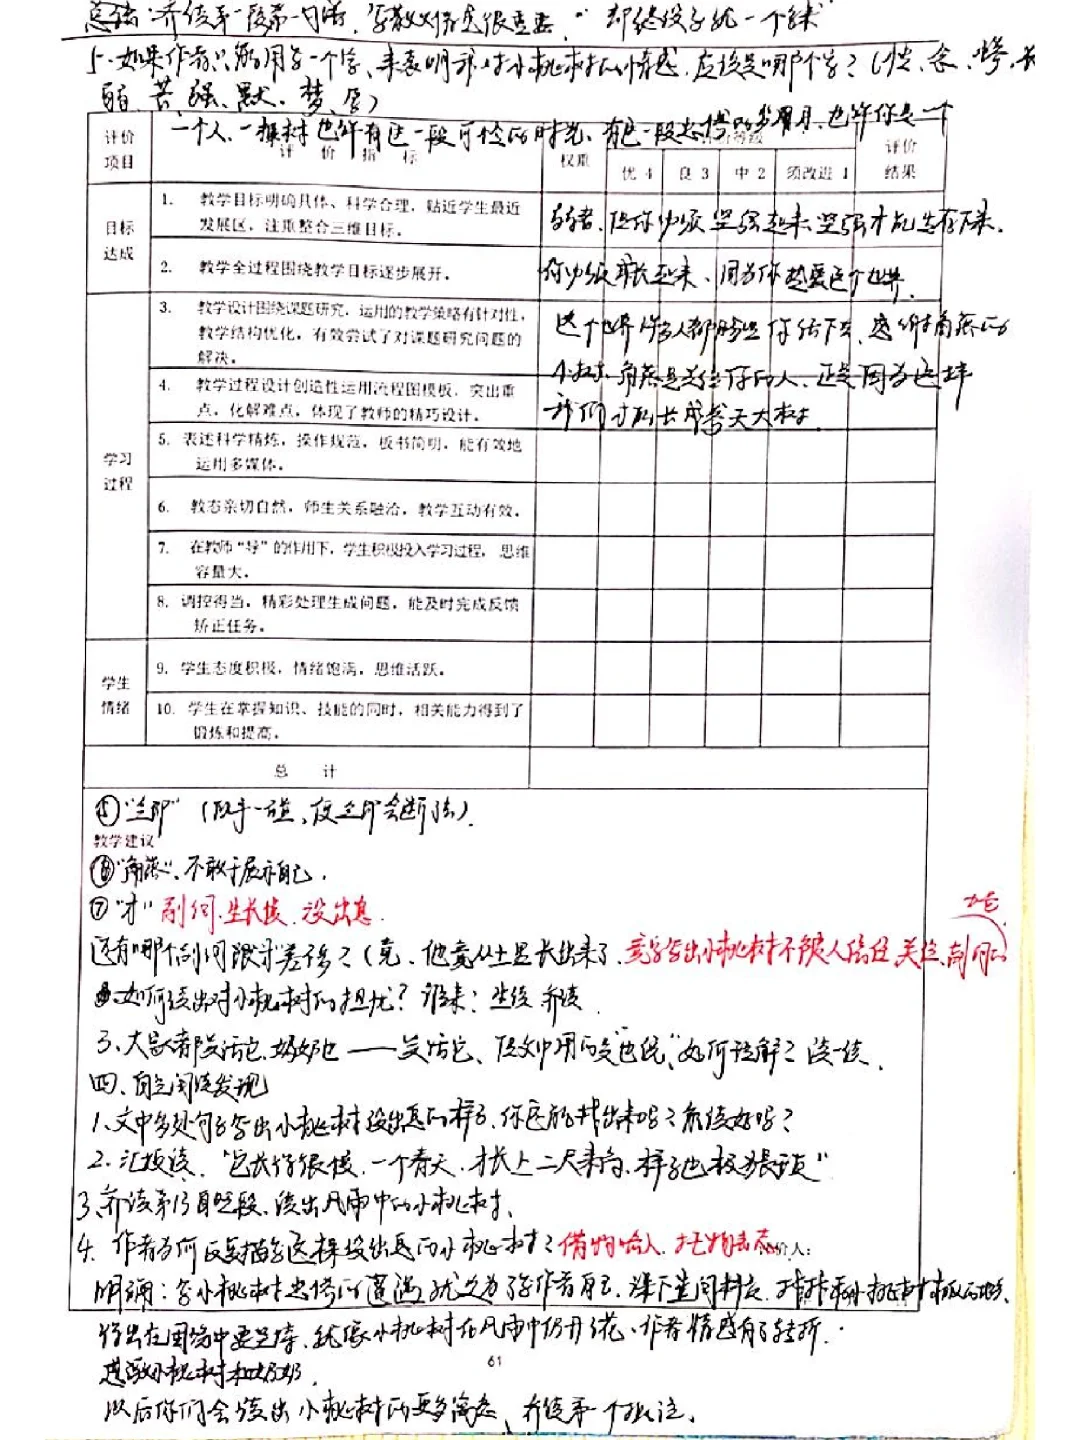 总结：齐读第一段第一句话
5. 如果作者只能用一个字，来表明我对小桃树的情感，应该是哪个字？（忆、念、
弱、苦、强、默、梦、
一个人、一棵树也许有这一段可怜的时光、有这一段悲惨的岁月、也许你是一个
评价项目
评 价 指 标
权重
评价等级
评价结果
优 4
良 3
中 2
须改进 1
弱者、但你必须坚强起来、坚强才能生存下来、
你必须成长起来、因为你热爱这个世界、
目标达成
1. 教学目标明确具体、科学合理，贴近学生最近
发展区，注重整合三维目标。
2. 教学全过程围绕教学目标逐步展开。
学习过程
3. 教学设计围绕课题研究，运用的教学策略有针对性，
教学结构优化，有效尝试了对课题研究问题的
解决。
4. 教学过程设计创造性运用流程图模板，突出重
点，化解难点，体现了教师的精巧设计。
我们才能长成参天大树．
5. 表述科学精炼，操作规范，板书简明，能有效地
运用多媒体。
6. 教态亲切自然，师生关系融洽，教学互动有效。
7. 在教师“导”的作用下，学生积极投入学习过程，思维
容量大。
8. 调控得当，精彩处理生成问题，能及时完成反馈
矫正任务。
学生情绪
9. 学生态度积极，情绪饱满，思维活跃。
10. 学生在掌握知识、技能的同时，相关能力得到了
锻炼和提高。
总 计
⑤“立即”（以手一碰、便立即会断
教学建议
⑥“角落”、不敢于展示自己．
⑦“才” 副词．生长慢、没出息．
还有哪个副词跟才差不多？（竟、他竟从土里长出来了、竟字写出小桃树不被人信任、关注、副词
如何读出对小桃树的担忧？谁来：生读 齐读
3、大家都笑话它、奶奶也——笑话它、但文中用的是“ 如何理解？读一读、
四、自主阅读发现
1、文中多处句子写出小桃树没出息的样子、你还能找出来吗？能读好吗？
2、汇报读、“它长得很慢、一个春天、才长上二尺来高、样子也极猥琐”
3、齐读第13自然段、读出风雨中的小桃树、
4、作者为何反复描写这棵没出息的小桃树？借物喻人、托物言志
价人：
明确：写小桃树悲惨的遭遇就是为了写作者自己，
就像小桃树在风雨中仍开了花、作者情感有了转折．
61
感激小桃树和奶奶．
以后你们会读出小桃树的更多寓意、齐读第一个批注、